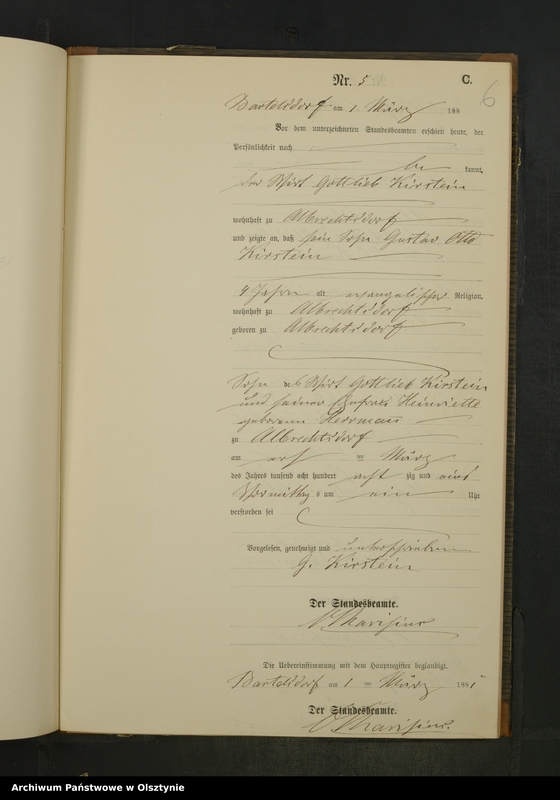 Nr. 5 C.
6
Bartelsdorf am 1. März 188
Vor dem unterzeichneten Standesbeamten erschien heute, der
Persönlichkeit nach
be kannt,
der Wirt Gottlieb Kirstein
wohnhaft zu Albrechtsdorf
und zeigte an, daß sein Sohn Gustav Otto
Kirstein
4 Jahre alt evangelischer Religion,
wohnhaft zu Albrechtsdorf
geboren zu Albrechtsdorf
Sohn des Wirt Gottlieb Kirstein
und seiner Ehefrau Heinriette
geborenen Herrmann
zu Albrechtsdorf
am ten März
des Jahres tausend acht hundert acht zig und eins
Vormittag s um ein Uhr
verstorben sei
Vorgelesen, genehmigt und unterschrieben
G. Kirstein
Der Standesbeamte.
Die Uebereinstimmung mit dem Hauptregister beglaubigt.
Bartelsdorf am 1 ten März 1881
Der Standesbeamte.
Archiwum Państwowe w Olsztynie